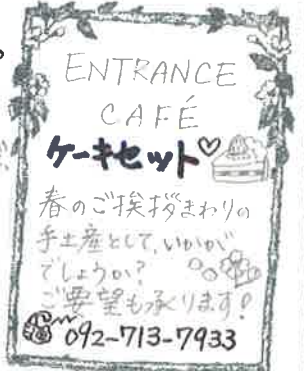 ENTRANCE
CAFÉ
ケーキセット♡
春のご挨拶まわりの
手土産として、いかがで
でしょうか?
ご要望も承ります!
092-713-7933